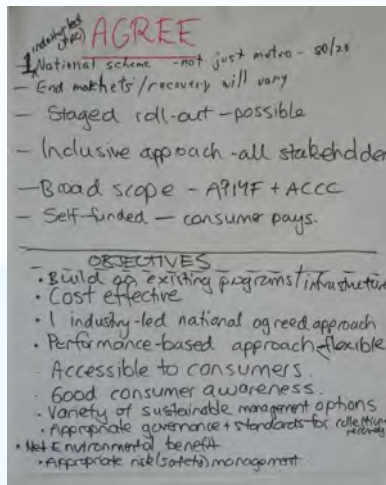 industry led
AGREE
1 National scheme - not just metro - 80/20
- End markets/recovery will vary
- Staged roll-out - possible
- Inclusive approach - all stakeholder
- Broad scope - + ACCC
- Self-funded - consumer pays.
OBJECTIVES
• Build on existing programs/infrastructure
• Cost effective
• 1 industry-led national agreed approach
• Performance-based approach - flexible
• Accessible to consumers
• Good consumer awareness.
• Variety of sustainable management options
• Appropriate governance + standards for collection
recovery
• Net Environmental benefit
• Appropriate risk (safety) management